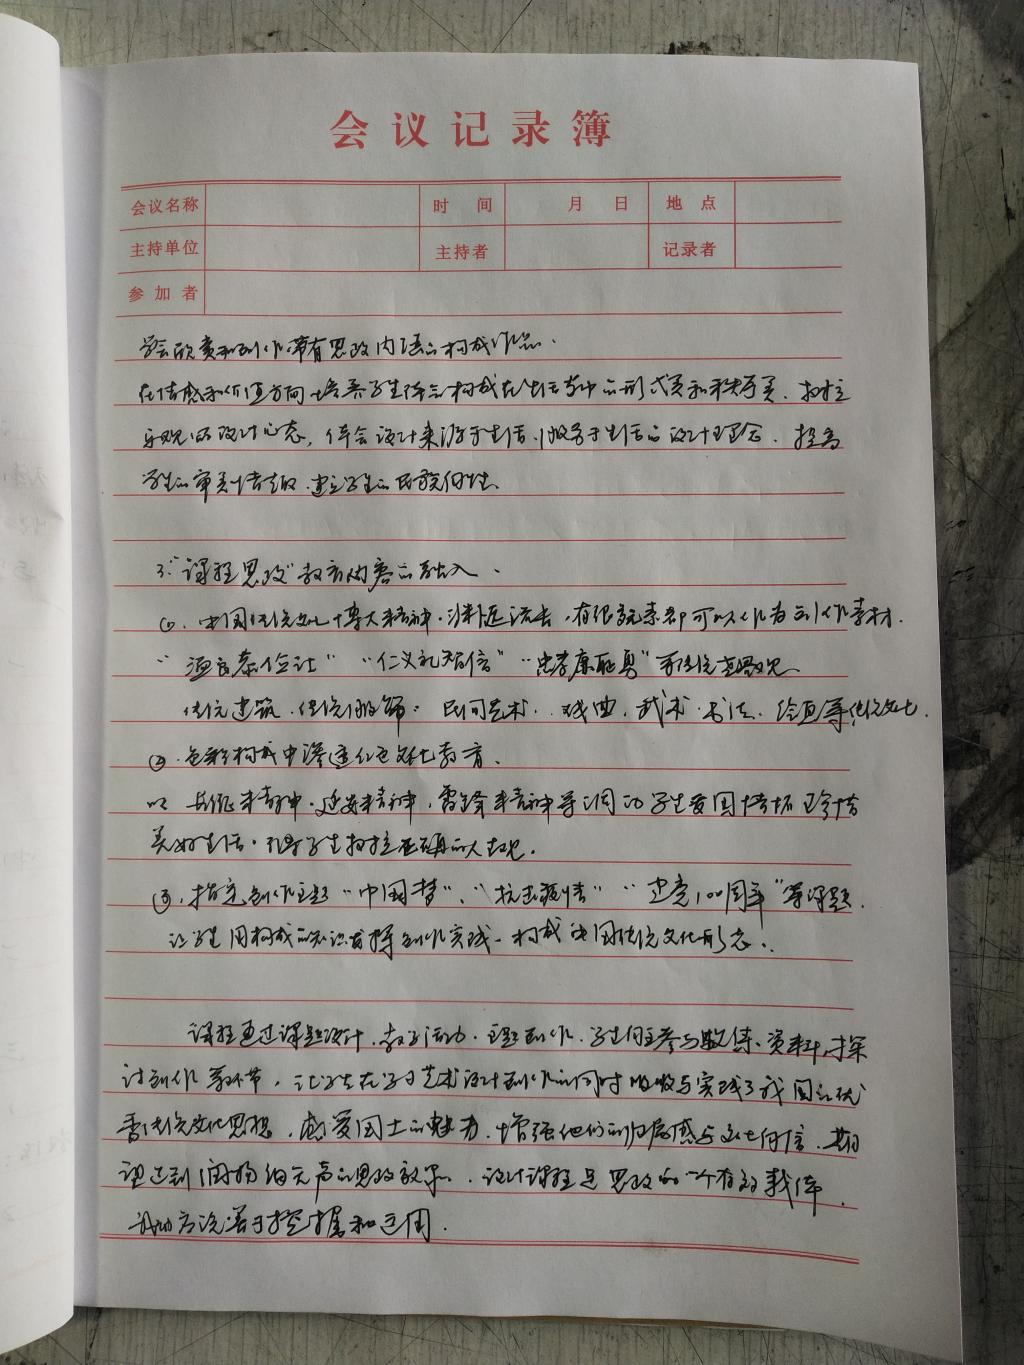 会议记录簿
会议名称 时间 月 日 地点
主持单位 主持者 记录者
参加者
学会欣赏和创作带有思政内涵的构成作品.
在情感和价值方向培养学生体会构成在生活中的形式美和秩序美、树立
乐观的设计心态,体会设计来源于生活、服务于生活的设计理念.提高
学生的审美情趣.建立学生的民族自信.
3."课程思政"教育内容的融入.
①.中国传统文化博大精神.渊远流长,有很多元素都可以作为创作素材.
"温良恭俭让" "仁义礼智信" "忠孝廉耻勇"等传统道德观
传统建筑.传统服饰.民间艺术..戏曲.武术.书法.绘画等传统文化.
②.色彩构成中渗透红色文化教育.
以 长征精神.延安精神,雷锋精神等调动学生爱国情怀 珍惜
美好生活.引导学生树立正确的人生观.
③.指定创作主题"中国梦"、"抗击疫情" "建党100周年"等课题.
让学生用构成的知识发挥创作实践.构成中国传统文化形态..
课程通过课题设计.教学活动.主题创作.学生自主参与收集、资料,探
讨创作等环节,让学生在学习艺术设计创作的同时吸收与实践了我国的优
秀传统文化思想.感受国土的魅力,增强他们的归属感与文化自信.
达到润物细无声的思政效果.设计课程是思政的一个有效载体.
善于挖掘和运用.